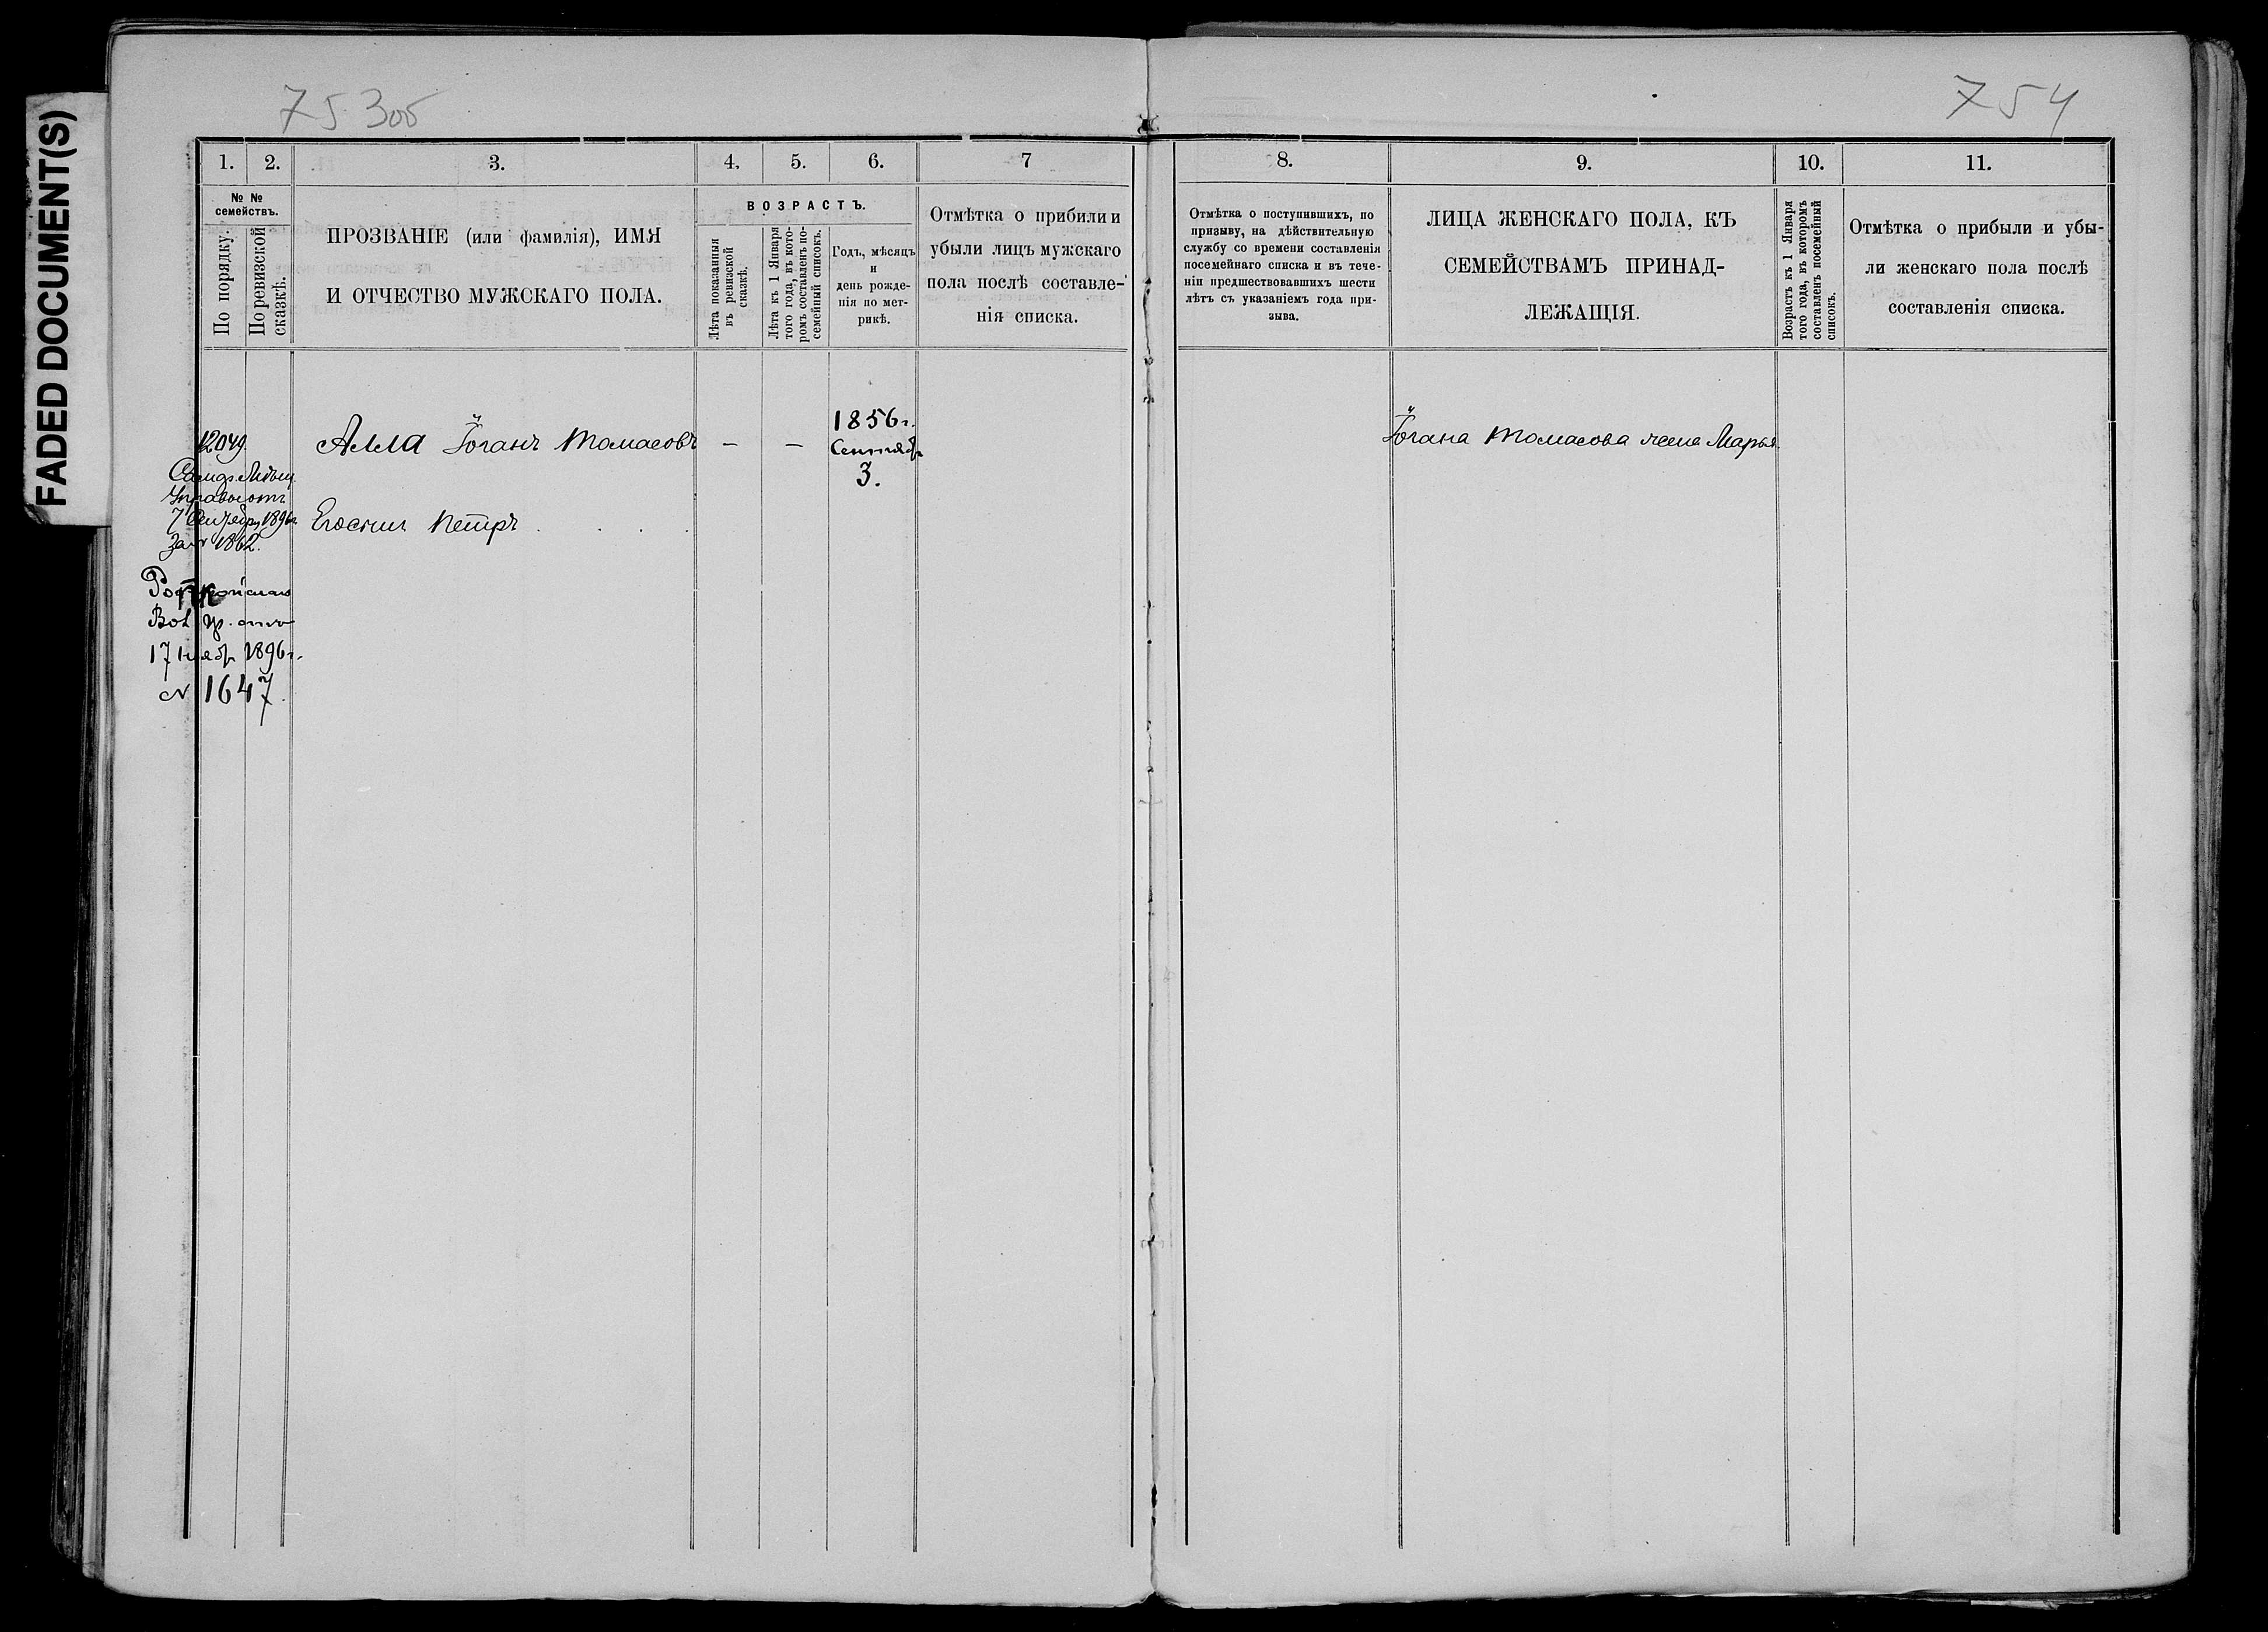 FADED DOCUMENT(S)
75 3об
754
1. 2. 3. 4. 5. 6. 7
№ №
семействъ.
По порядку.
По ревизской
сказкѣ.
ПРОЗВАНІЕ (или фамилія), ИМЯ
И ОТЧЕСТВО МУЖСКАГО ПОЛА.
ВОЗРАСТЪ.
Лѣта показанія
въ ревизской
сказкѣ.
Лѣта къ 1 Января
того года, въ кото-
ромъ составленъ по-
семейный списокъ.
Годъ, мѣсяцъ
и
день рожде-
нія по мет-
рикѣ.
Отмѣтка о прибыли и
убыли лицъ мужскаго
пола послѣ составле-
нія списка.
8. 9. 10. 11.
Отмѣтка о поступившихъ, по
призыву, на дѣйствительную
службу со времени составленія
посемейнаго списка и въ тече-
ніи предшествовавшихъ шести
лѣтъ съ указаніемъ года при-
зыва.
ЛИЦА ЖЕНСКАГО ПОЛА, КЪ
СЕМЕЙСТВАМЪ ПРИНАД-
ЛЕЖАЩІЯ.
Возрастъ къ 1 Января
того года, въ которомъ
составленъ посемейный
списокъ.
Отмѣтка о прибыли и убы-
ли женскаго пола послѣ
составленія списка.
12049.
Алла Іоганъ Томасовъ — —
1856 г.
Сентябр
3.
Іогана Томасова жена Марья.
7 1896 г
За № 1862.
Его сынъ Петръ
17 1896 г.
№ 1647.